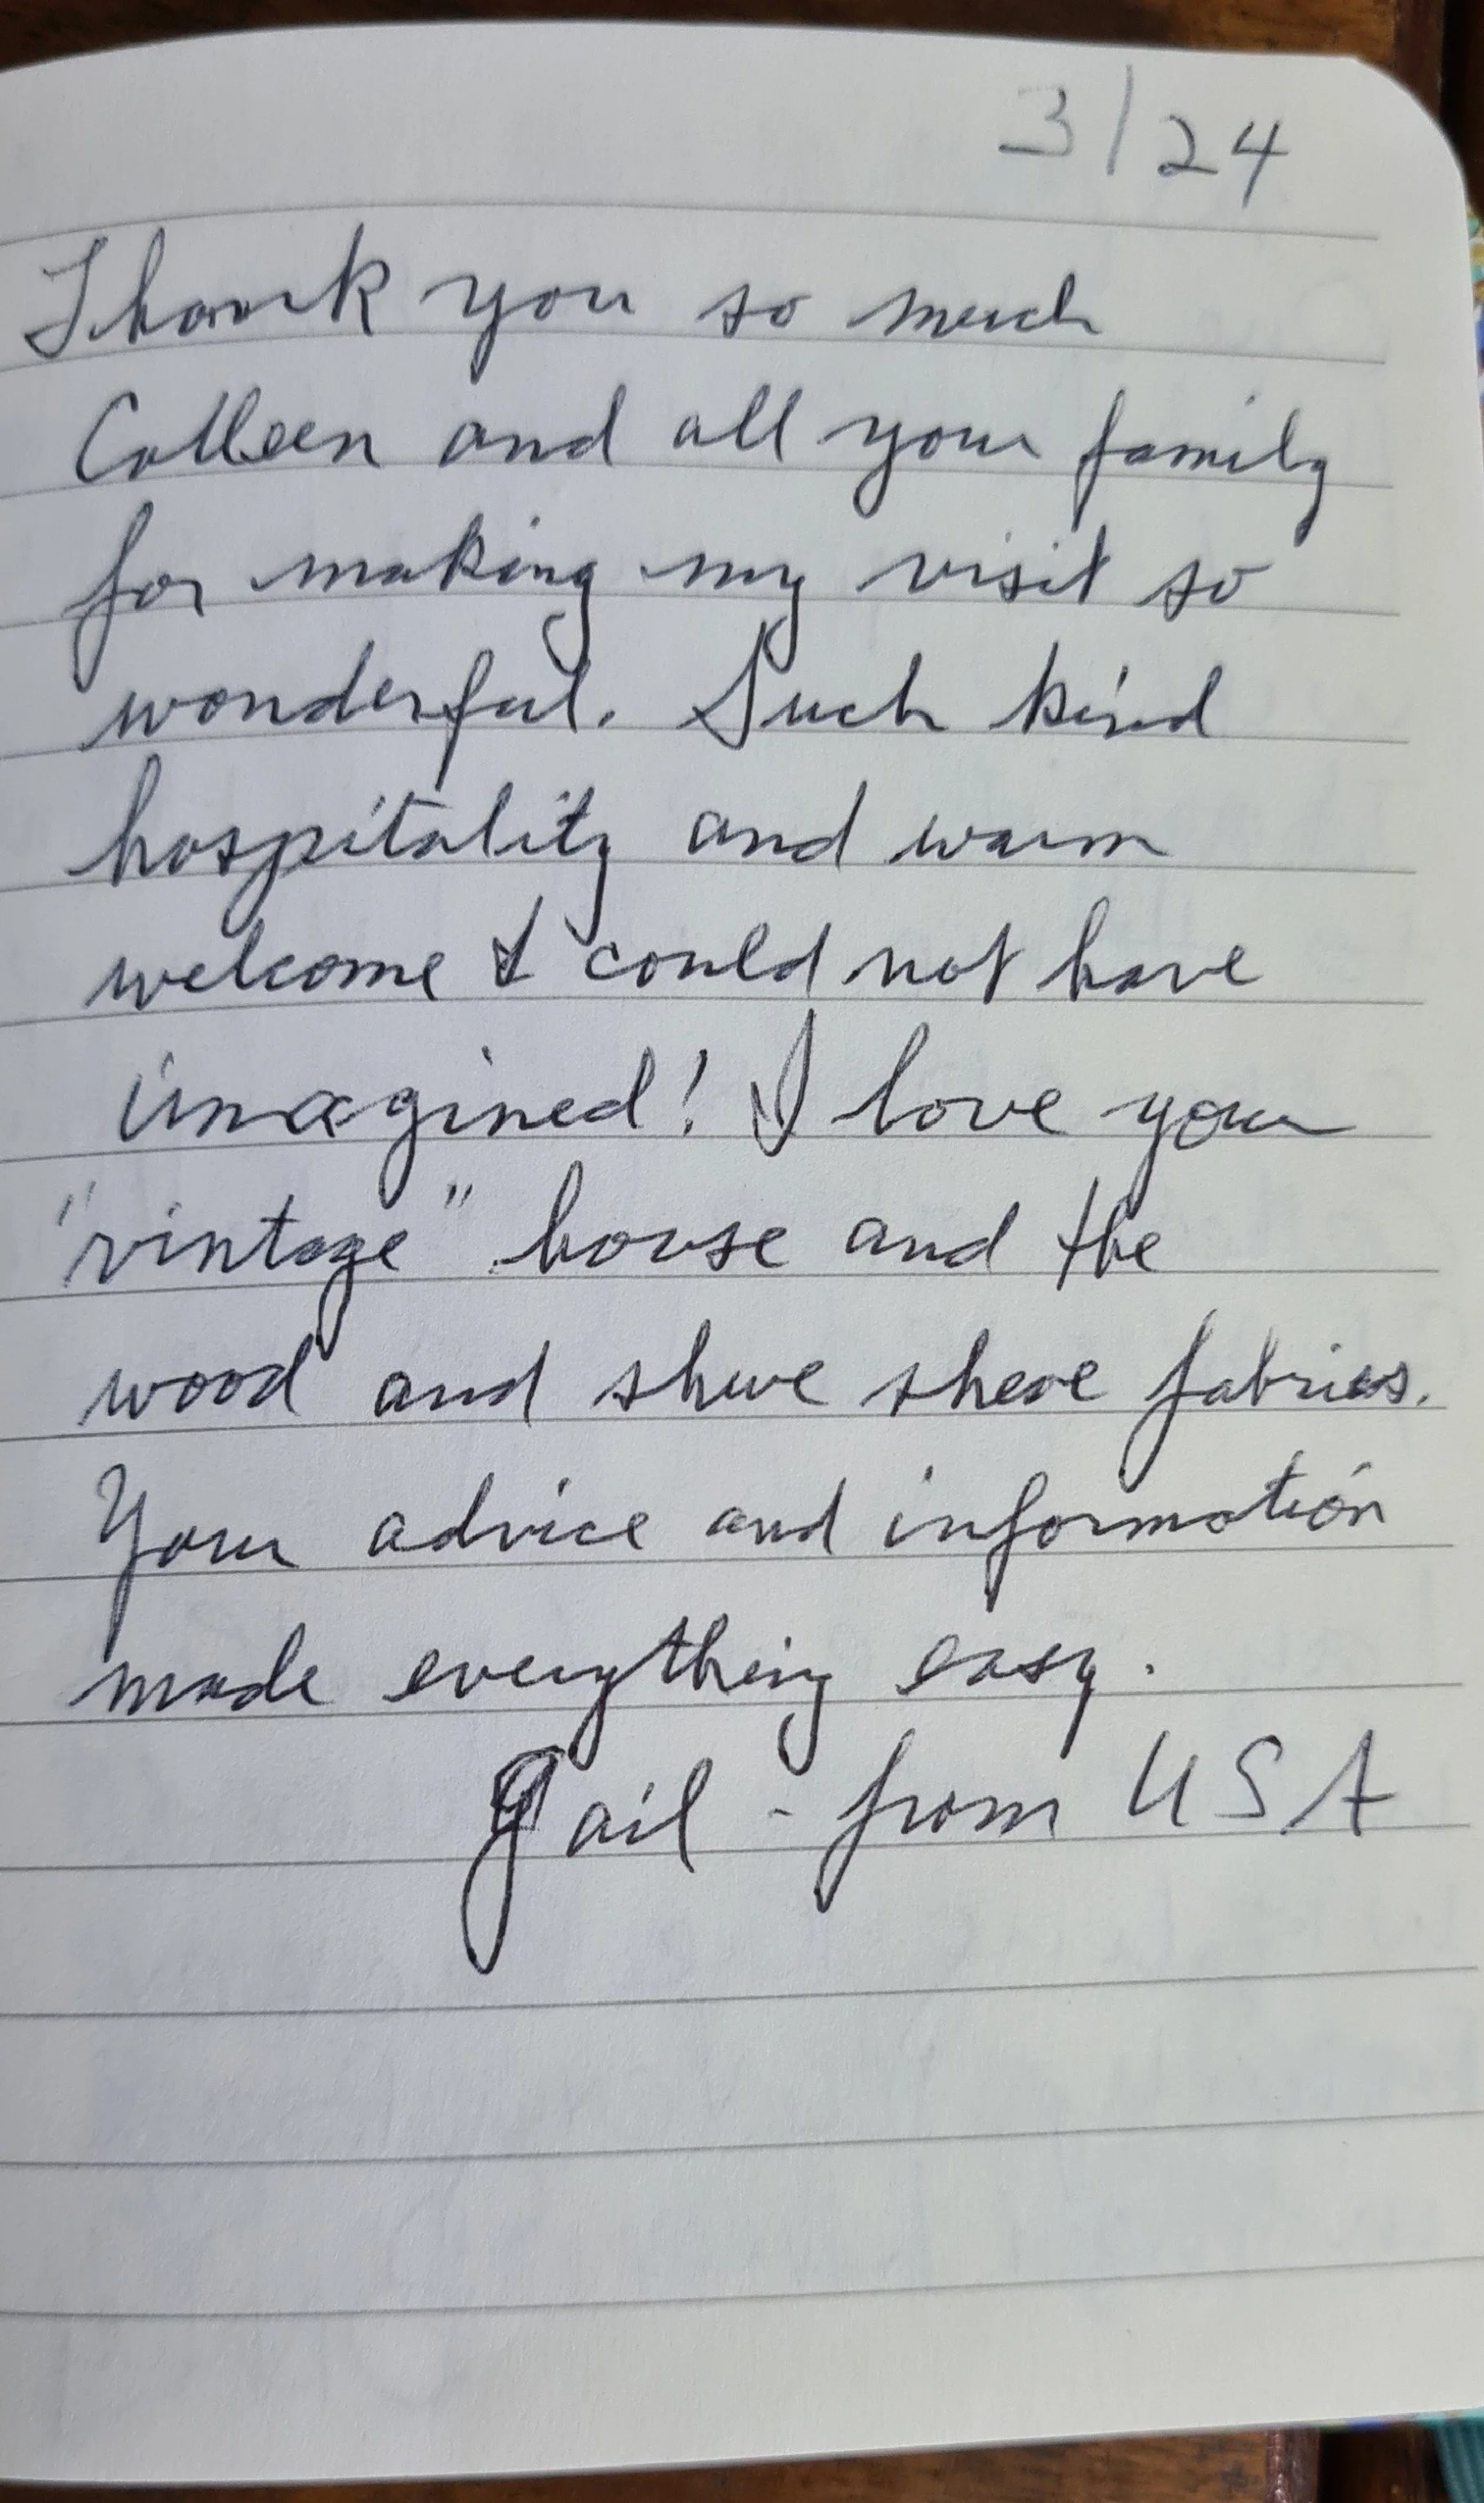 3/24
Thank you so much
Colleen and all your family
for making my visit so
wonderful. Such kind
hospitality and warm
welcome I could not have
imagined! I love your
"vintage" house and the
wood and shwe shwe fabrics.
Your advice and information
made everything easy.
Gail - from USA